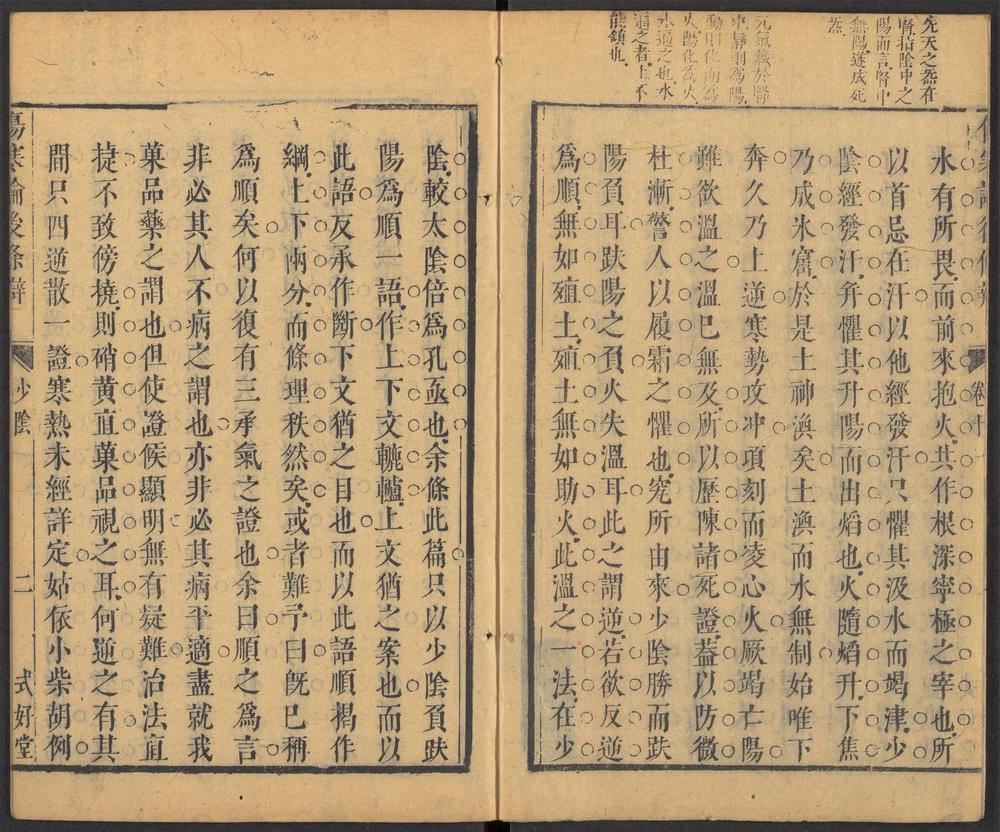 先天之炁在
腎指陰中之
陽而言腎中
無陽遂成死
炁
元氣藏於腎
中靜則爲陽
動則化而爲
火陽化爲火
水逼之也水
逼之者土不
能鎮也
水有所畏而前來抱火其作根深寧極之宰也所
以首忌在汗以他經發汗只懼其汲水而竭津少
陰經發汗弁懼其升陽而出焰也火隨焰升下焦
乃成氷窟於是土神渙矣土渙而水無制始唯下
奔久乃上逆寒勢攻冲項刻而凌心火厥竭亡陽
雖欲溫之溫已無及所以歷陳諸死證葢以防微
杜漸警人以履霜之懼也究所由來少陰勝而趺
陽負耳趺陽之負火失溫耳此之謂逆若欲反逆
爲順無如殖土殖土無如助火此溫之一法在少
卷十
陰較太陰倍爲孔亟也余條此篇只以少陰負趺
陽爲順一語作上下文轆轤上文猶之案也而以
此語反承作斷下文猶之目也而以此語順揭作
綱上下兩分而條理秩然矣或者難予曰旣已稱
爲順矣何以復有三承氣之證也余曰順之爲言
非必其人不病之謂也亦非必其病平適盡就我
菓品藥之謂也但使證候顯明無有疑難治法直
捷不致傍撓則硝黄直菓品視之耳何逆之有其
間只四逆散一證寒熱未經詳定姑依小柴胡例
傷寒論後條辯 少陰 二 式好堂